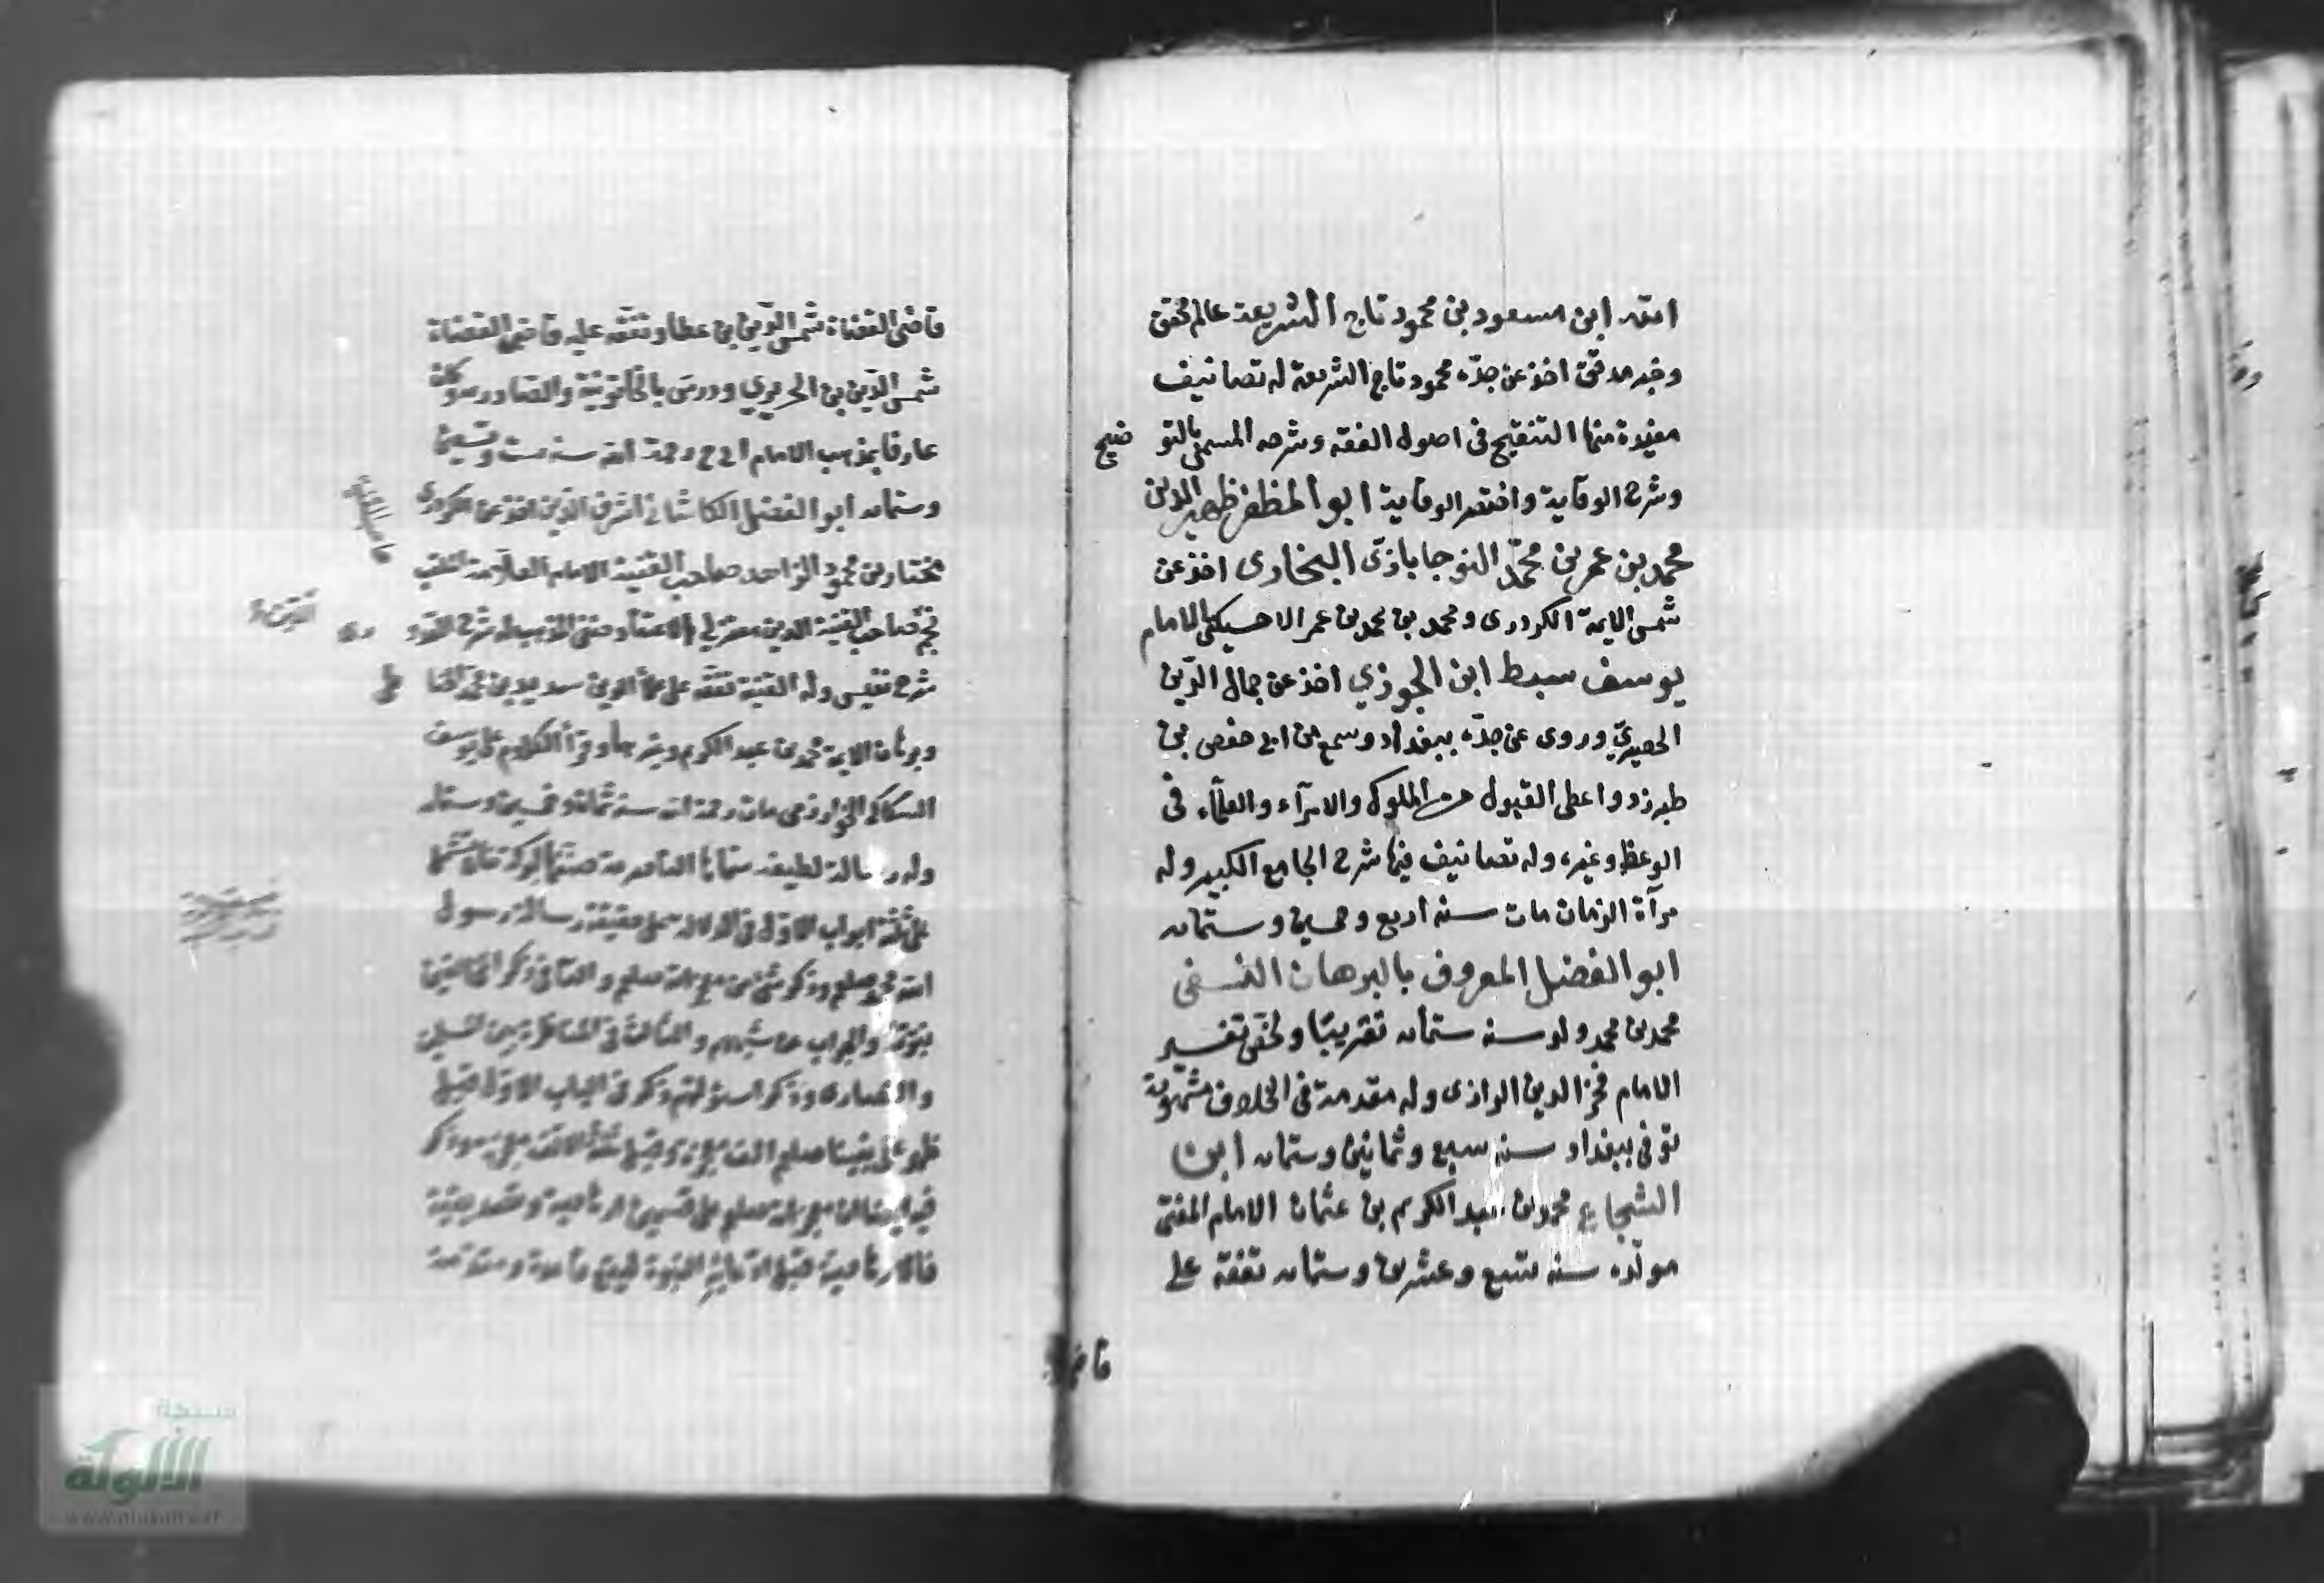 الله ابن مسعود بن محمود تاج الشريعة عالم محقق
وخبر مدقق اخذ عن جدّه محمود تاج الشريعة له تصانيف
مفيدة منها التنقيح فى اصول الفقه وشرحه المسمى بالتو ضيح
وشرح الوقاية واختصر الوقاية ابو المظفر ظهير الدين
محمد بن عمر بن محمّد النوجاباذى البخارى اخذ عن
شمس الايمة الكردرى و محمد بن محمد بن عمر الاخسيكتى الامام
يوسف سبط ابن الجوزي اخذ عن جمال الدّين
الحصيري وروى عن جدّه ببغداد وسمع من ابى حفص بن
طبرزد واعطى القبول من الملوك والامرآء والعلمآء فى
الوعظ وغيره وله تصانيف فيها شرح الجامع الكبير وله
مرآة الزمان مات سنه أربع وخمسين وستمايه
ابو الفضل المعروف بالبرهان النسفى
محمد بن محمد ولد سنه ستمايه تقريبًا ولخّص تفسير
الامام فخر الدين الرازى وله مقدمة فى الخلاف مشهورة
توفى ببغداد سنه سبع وثمانين وستمايه ابن
الشجاع محمد بن عبد الكريم بن عثمان الامام المفتى
مولده سنه تسع وعشرين وستمايه تفقه على
قاضى القضاة شمس الدّين بن عطا وتفقه عليه قاضى القضاة
شمس الدّين بن الحريري ودرس بالخاتونية والقصا وكان
عارفا بمذهب الامام ابى ح رحمة الله سنه ست وتسعين
وستمايه ابو الفضل الكاشانى اشرف الدين اخذ عن الكردرى
مختار بن محمود الزاهد صاحب القنية الامام العلامة الملقب
نجم الدين معتزلى الاعتقاد حنفى المذهب له شرح القدو رى
شرح نفيس وله القنية تفقه على علآ الدين سديد بن محمد الخيا طى
وبرهان الايمة محمد بن عبد الكريم وغيرهما وقرأ الكلام على يوسف
السكاكى الخوارزمى مات رحمة الله سنه ثمان وخمسين وستمايه
وله رسالة لطيفه سماها الناصرية صنّفها لبركة خان مشتملة
على ثلثة ابواب الاوّل فى الدلالة على حقيقة رسالة رسول
الله محمد صلعم وذكر شئ من معجزاته صلعم والثانى ذكر المخالفين
بنوته والجواب عن شبههم والثالث فى المناظرة بين المسلمين
والنصارى وذكر اسولتهم وذكر فى الباب الاوّل قيل
ظهر على نبينا صلعم الف معجزة وقيل ثلثة الاف معجزة وذكر
فيه ايضا ان معجزاته صلعم على قسمين ارهاصية وتصديقية
فالارهاصية قبل النبوة
قاضى
شبكة
الألوكة
www.alukah.net